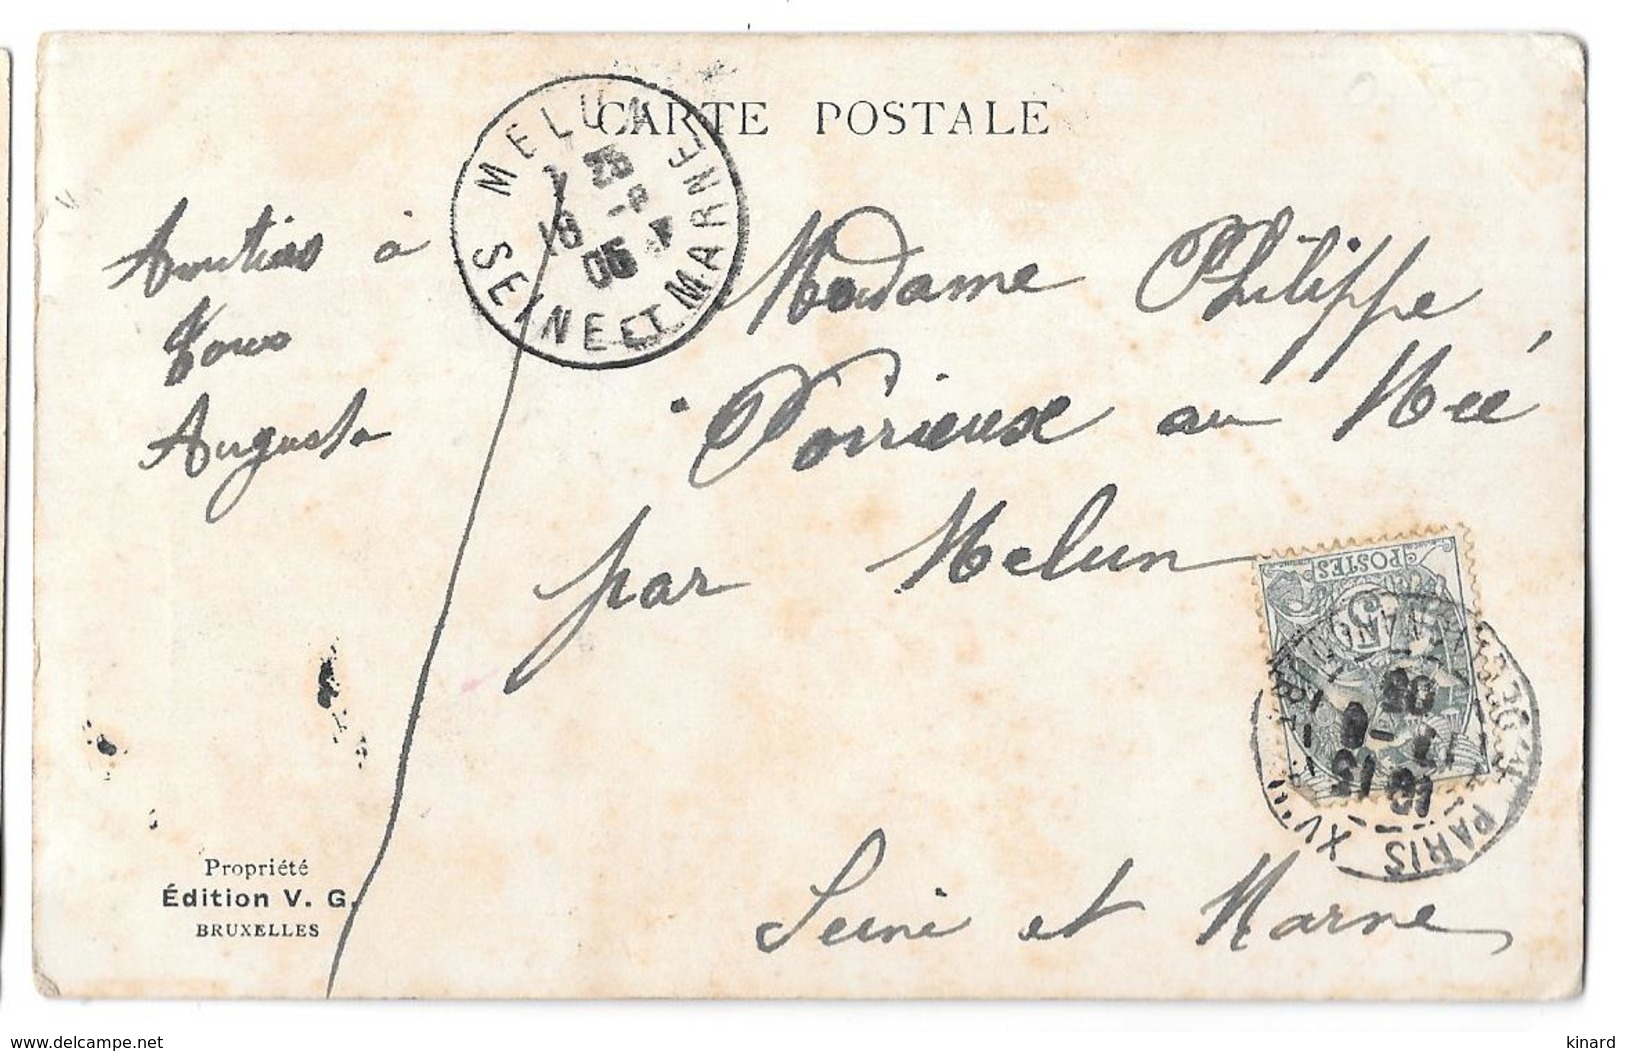 CARTE POSTALE
MELUN
7 25
18 -8
05
SEINE ET MARNE
Amitiés à
Tous
Augusta
Madame Philippe
Poirieux au Mée
par Melun
Seine et Marne
POSTES
5
PARIS XVIII
18 15
17 -8
05
Propriété
Édition V. G.
BRUXELLES
www.delcampe.net
kinard